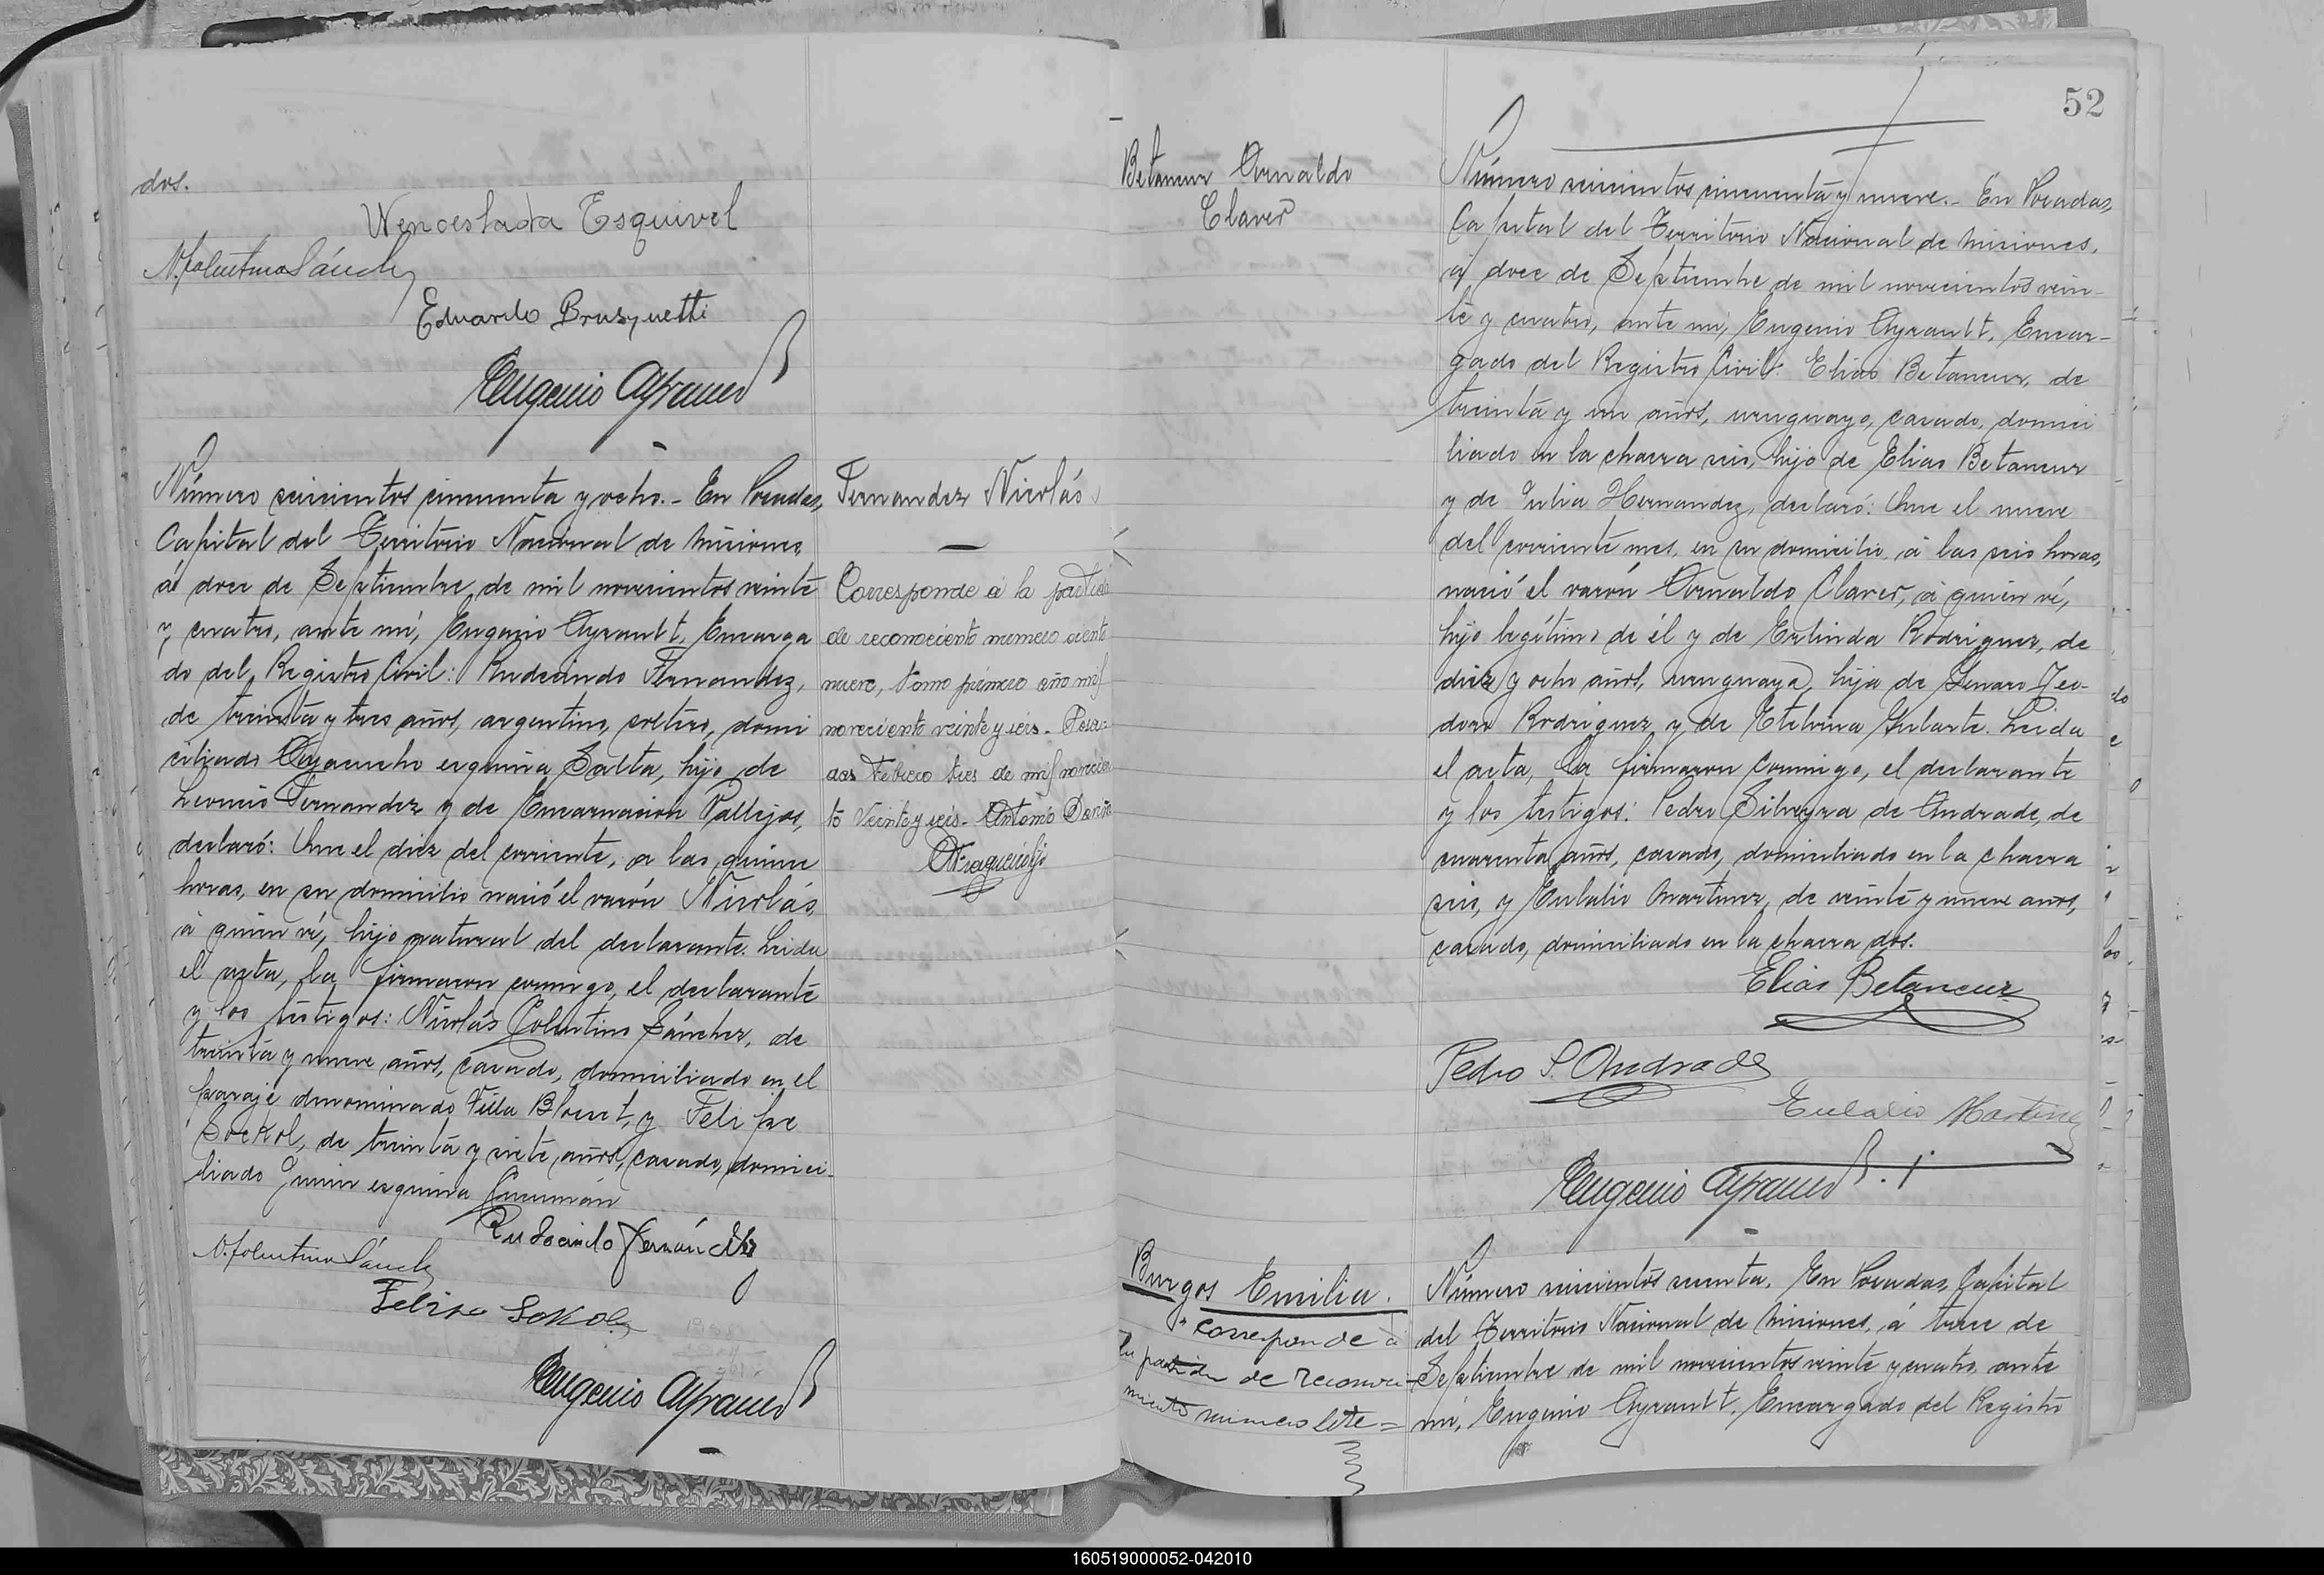 dos.
Wenceslada Esquivel
N. Tolentino Sánchez
Eduardo Brusquetti
Eugenio Ayrault
Número seiscientos cincuenta y ocho.- En Posadas,
Capital del Territorio Nacional de Misiones,
á doce de Septiembre de mil novecientos veinte
y cuatro, ante mí, Eugenio Ayrault, Encarga
do del Registro Civil: Rudecindo Fernandez,
de treinta y tres años, argentino, soltero, domi
ciliado Ayacucho esquina Salta, hijo de
Leoncio Fernandez y de Encarnacion Vallejos,
declaró: Que el diez del corriente, a las quince
horas, en su domicilio nació el varón Nicolás,
á quien ví, hijo natural del declarante. Leida
el acta, la firmaron conmigo, el declarante
y los testigos: Nicolás Tolentino Sánchez, de
treinta y nueve años, casado, domiciliado en el
paraje denominado Villa Blosset, y Felipe
Sockol, de treinta y siete años, casado, domici-
liado Junin esquina Tucumán
Rudecindo Fernández
N. Tolentino Sánchez
Felipe Sokol
Eugenio Ayrault
Fernandez Nicolás
Corresponde á la partida
de reconociento numero ciento
nueve, tomo primero año mil
noveciento veinte y seis. Posa-
das Febrero tres de mil novecien
to veinte y seis. Antonio Dariño
Betancur Arnaldo
Claver
52
Número seiscientos cincuenta y nueve.- En Posadas,
Capital del Territorio Nacional de Misiones,
á doce de Septiembre de mil novecientos vein-
te y cuatro, ante mí, Eugenio Ayrault, Encar-
gado del Registro Civil: Elias Betancur, de
treinta y un años, uruguayo, casado, domici
liado en la chacra seis, hijo de Elias Betancur
y de Julia Hernandez, declaró: Que el nueve
del corriente mes, en su domicilio, á las seis horas,
nació el varón Arnaldo Claver, á quien ví,
hijo legítimo de él y de Erlinda Rodriguez, de
diez y ocho años, uruguaya, hija de Genaro Teo-
doro Rodriguez y de Etelvina Gularte. Leida
el acta, la firmaron conmigo, el declarante
y los testigos: Pedro Silveyra de Andrade, de
cuarenta años, casado, domiciliado en la chacra
seis, y Eulalio Martinez, de veinte y nueve anos,
casado, domiciliado en la chacra dos.
Elias Betancur
Pedro S. Andrade
Eulalio Martinez
Eugenio Ayrault
Burgos Emilia.
Corresponde á
la partida de reconoci-
miento número siete =
Número seiscientos sesenta. En Posadas, Capital
del Territorio Nacional de Misiones, á trece de
Septiembre de mil novecientos veinte y cuatro, ante
mí, Eugenio Ayrault, Encargado del Registro
160519000052-042010